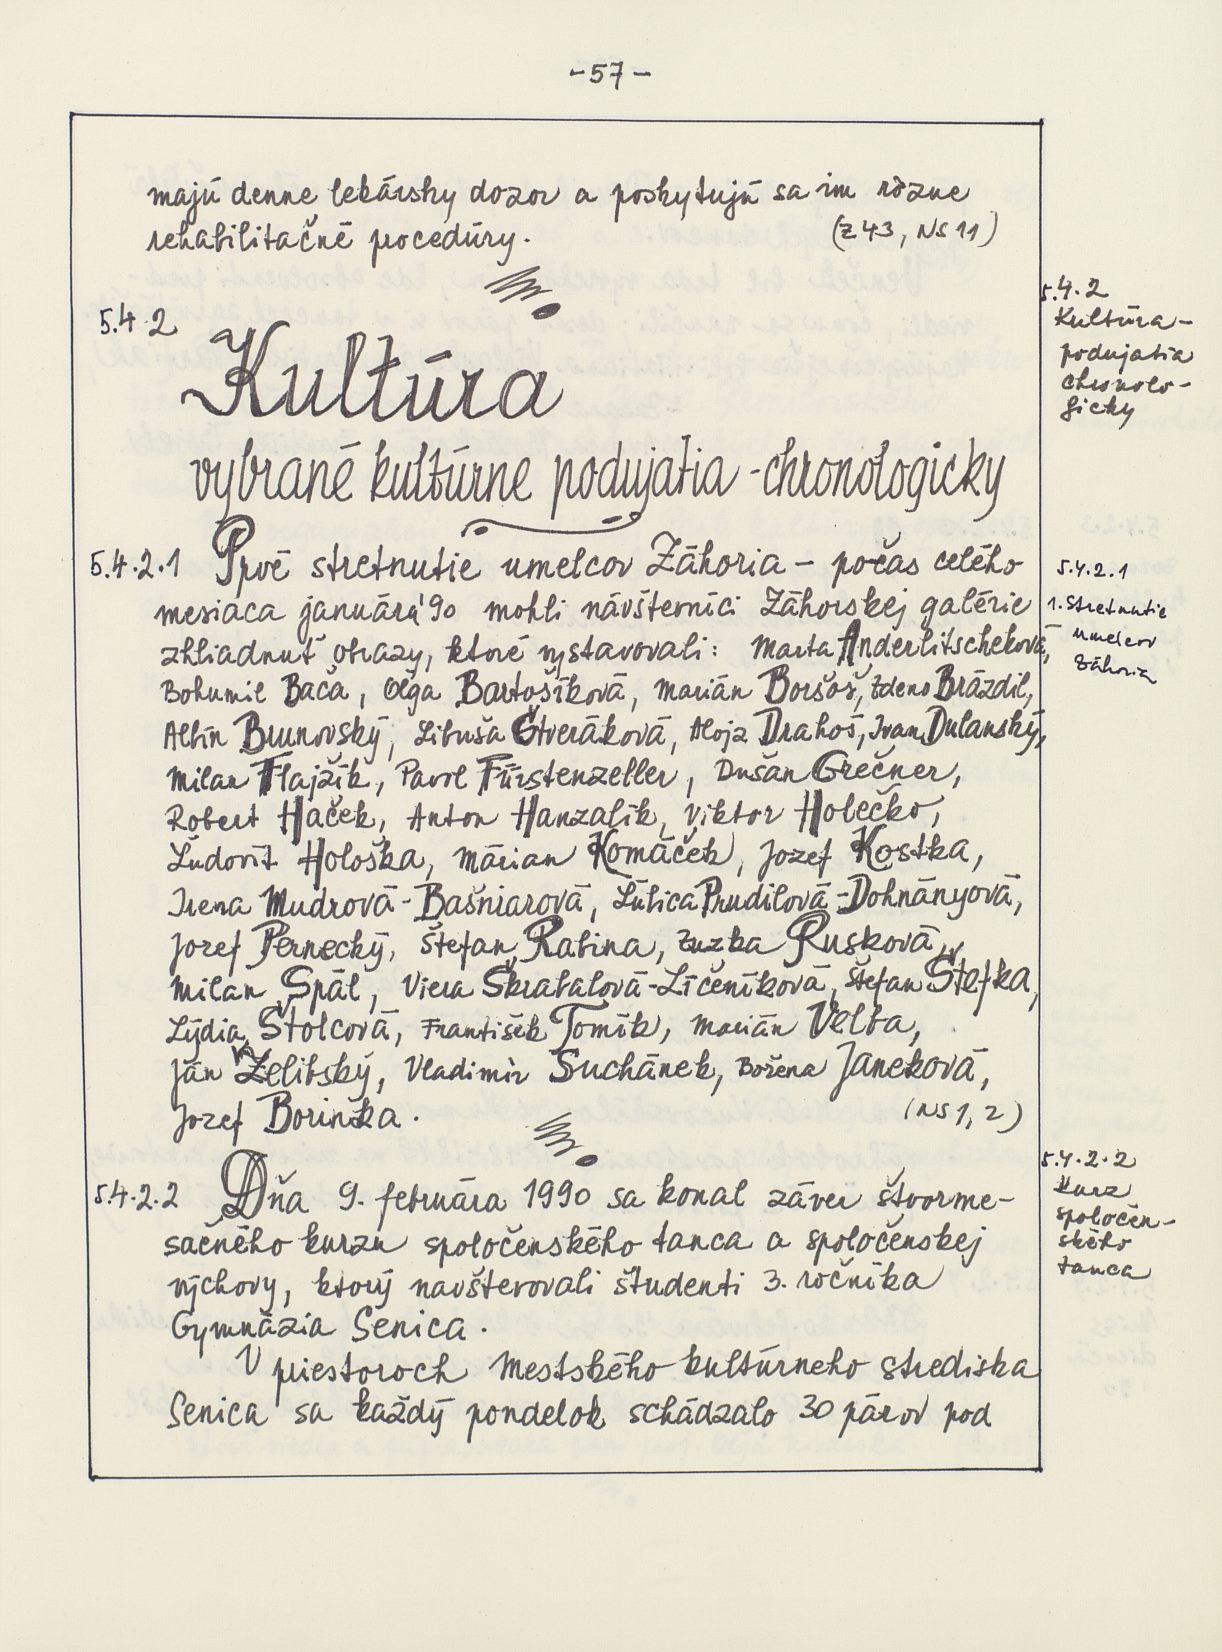 -57-
majú denne lekársky dozor a poskytujú sa im rôzne
rehabilitačné procedúry.
(Z43, NS 11)
5.4.2
Kultúra
5.4.2
Kultúra-
podujatia
chronolo-
gicky
vybrané kultúrne podujatia - chronologicky
5.4.2.1 Prvé stretnutie umelcov Záhoria - počas celého
5.4.2.1
1. Stretnutie
umelcov
Záhoria
mesiaca januára '90 mohli návštevníci Záhorskej galérie
zhliadnuť obrazy, ktoré vystavovali: Marta Anderlitscheková,
Bohumil Bača, Oľga Bartošíková, Marián Boršoš, Zdeno Brázdil,
Albín Brunovský, Libuša Čtveráková, Alojz Drahoš, Ivan Dulanský,
Milan Flajžík, Pavol Fürstenzeller, Dušan Grečner,
Robert Haček, Anton Hanzalík, Viktor Holečko,
Ľudovít Hološka, Márian Komáček, Jozef Kostka,
Irena Mudrová-Bašniarová, Ľubica Prudilová-Dohnányová,
Jozef Pernecký, Štefan Rabina, Zuzka Rusková,
Milan Špál, Viera Škrabalová-Líčeníková, Štefan Štefka,
Lýdia Štolcová, František Tomík, Marián Velba,
Ján Želibský, Vladimír Suchánek, Božena Janeková,
Jozef Borinka.
(NS 1, 2)
5.4.2.2 Dňa 9. februára 1990 sa konal záver štvorme-
5.4.2.2
Kurz
spoločen-
ského
tanca
sačného kurzu spoločenského tanca a spoločenskej
výchovy, ktorý navšterovali študenti 3. ročníka
Gymnázia Senica.
V priestoroch Mestského kultúrneho strediska
Senica sa každý pondelok schádzalo 30 párov pod